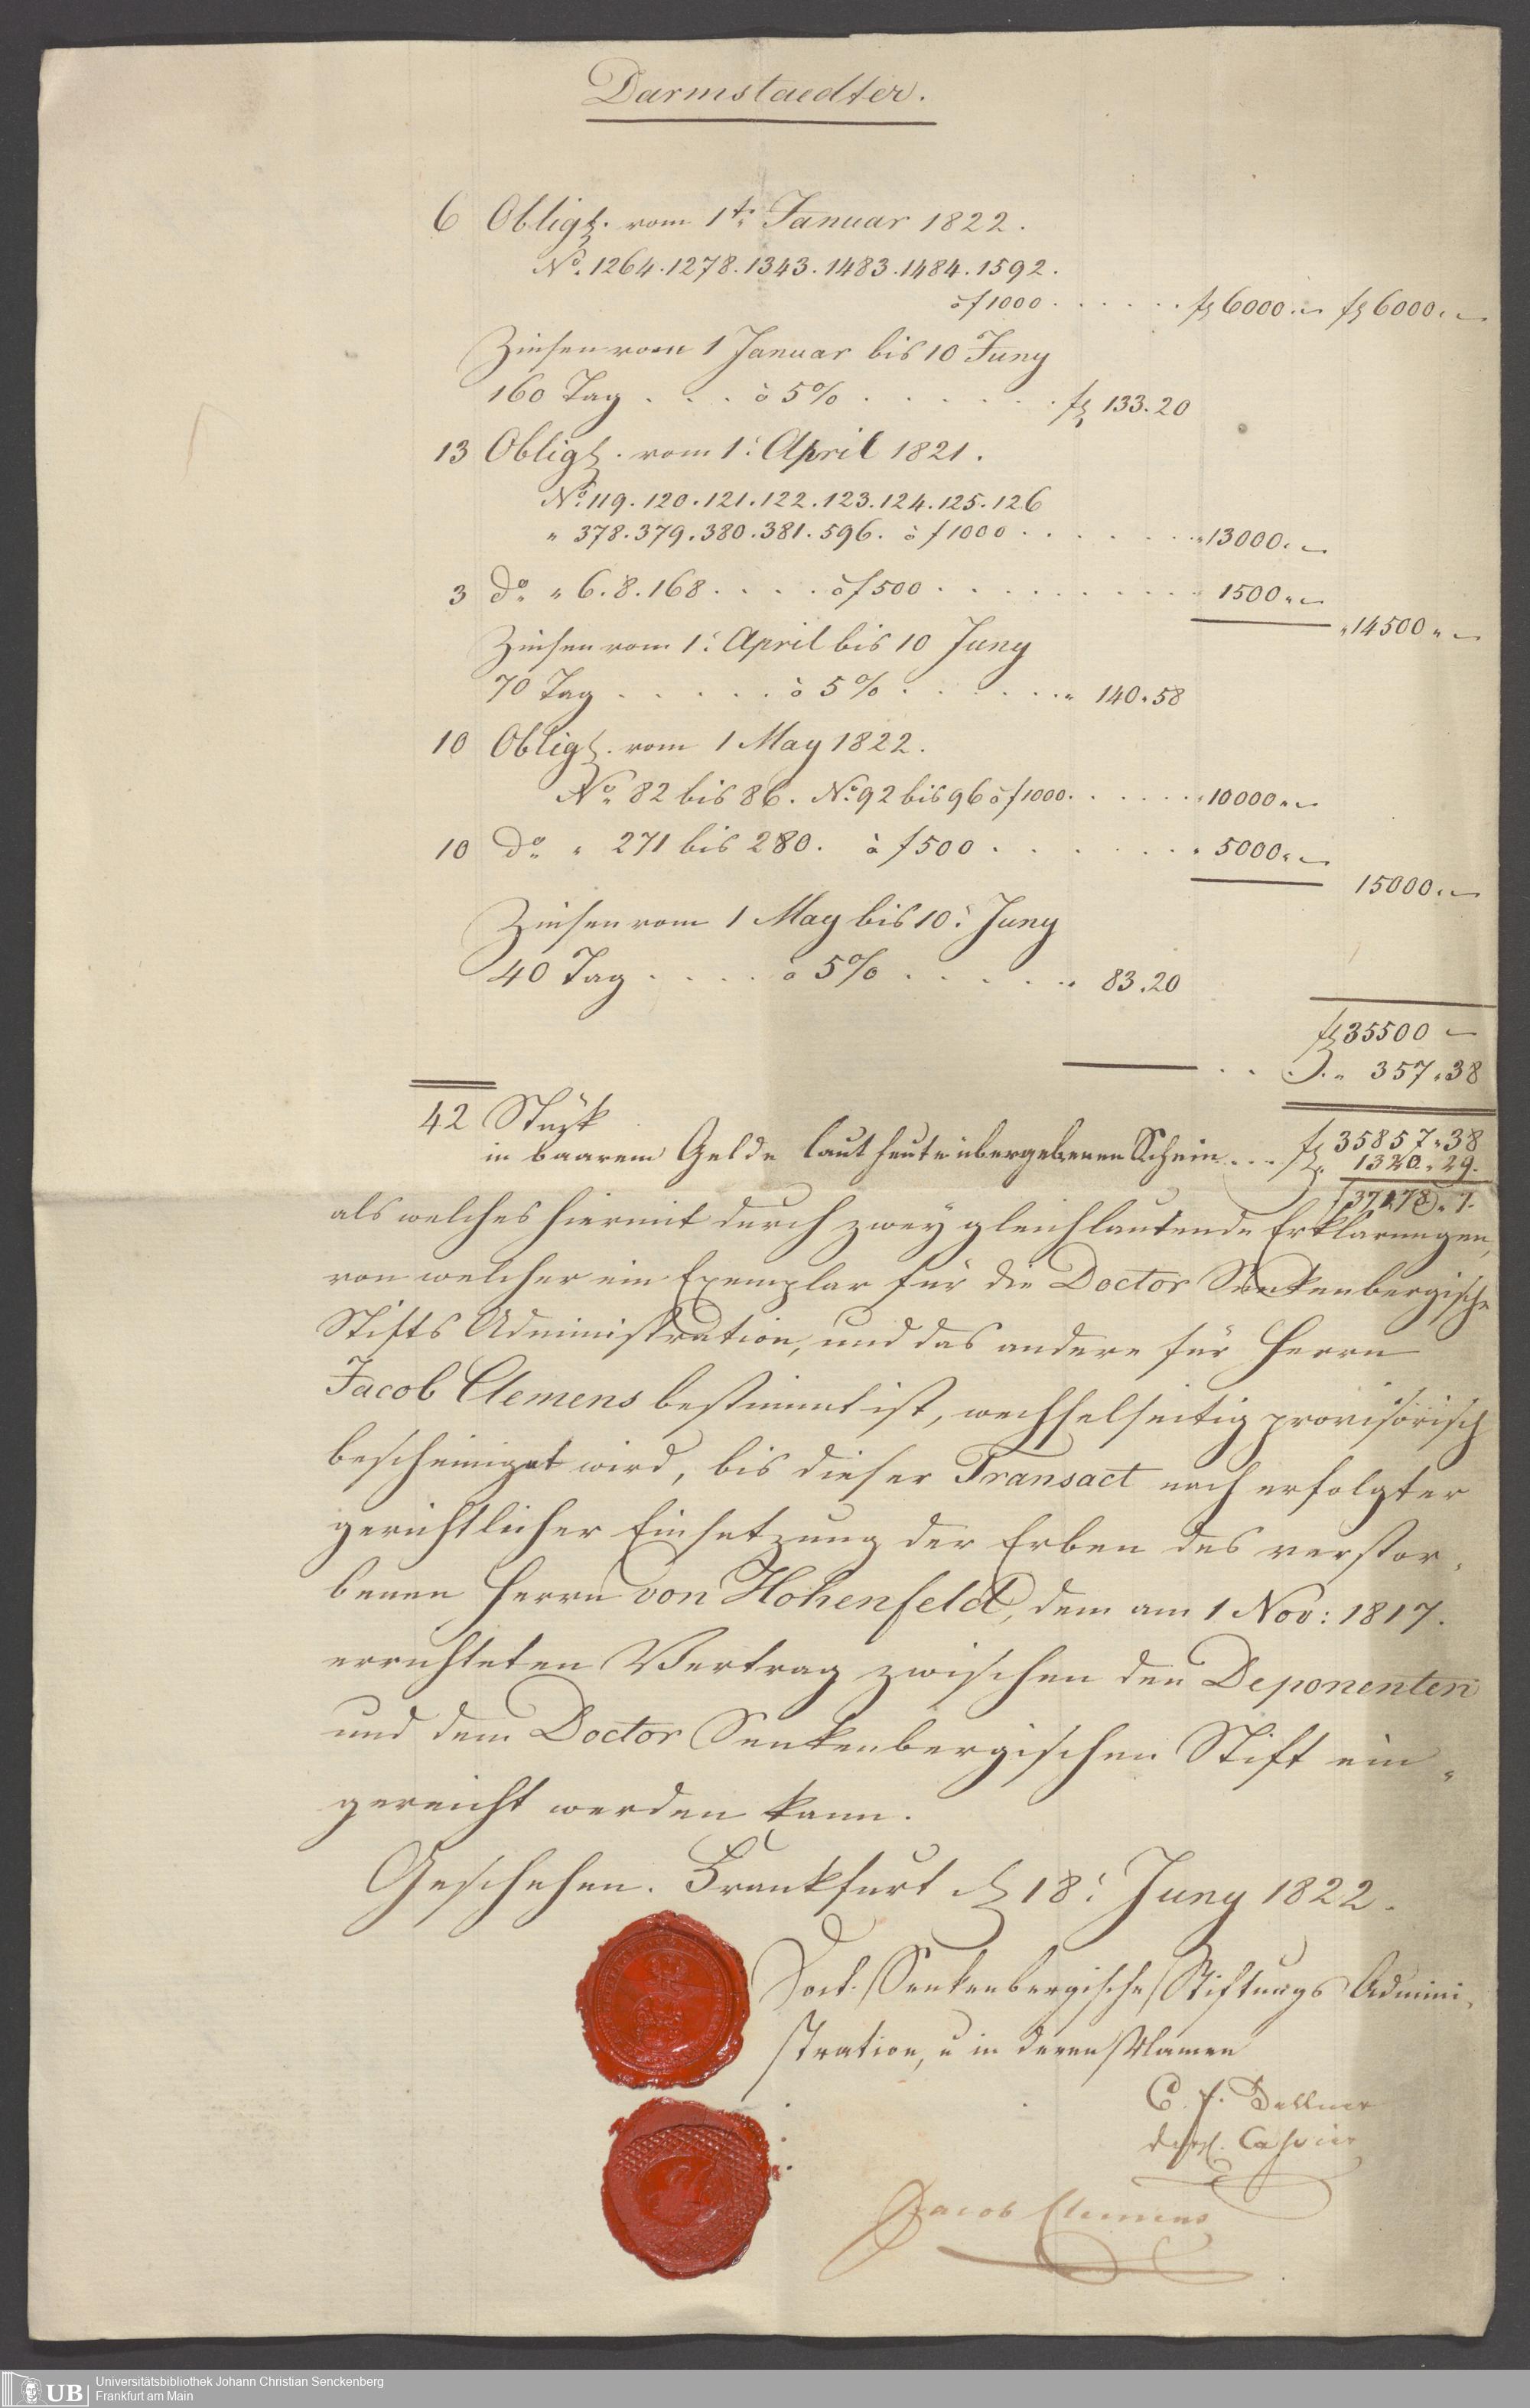 Darmstaedter.
6 Oblig. vom 1t. Januar 1822.
No. 1264. 1278. 1343. 1483. 1484. 1592.
à f 1000 . . . . . . f 6000. — f 6000. —
Zinsen vom 1 Januar bis 10 Juny
160 Tag . . . à 5% . . . . . . . f 133.20
13 Oblig. vom 1. April 1821.
No. 119. 120. 121. 122. 123. 124. 125. 126
" 378. 379. 380. 381. 596. à f 1000 . . . . . . . " 13000. —
3 do. " 6. 8. 168. . . . à f 500 . . . . . . . . . . 1500 " —
" 14500 " —
Zinsen vom 1. April bis 10 Juny
70 Tag . . . . . à 5% . . . . . . " 140 " 58
10 Oblig. vom 1 May 1822.
No. 82 bis 86. No. 92 bis 96 à f 1000. . . . . . " 10000 " —
10 do. " 271 bis 280. à f 500 . . . . . . " 5000 " —
15000 " —
Zinsen vom 1 May bis 10. Juny
40 Tag . . . . à 5% . . . . . " 83.20
f 35500 —
. . . " 357 " 38
42 Stük f 35857 " 38
in baarem Gelde laut heute übergebenen Schein . . . f 1320 " 29.
f 37178 " 7.
als welches hiermit durch zwey gleichlautende Erklärungen,
von welcher ein Exemplar für die Doctor Senkenbergische
Stifts Administration, und das andere für Herrn
Jacob Clemens bestimmt ist, wechselseitig provisorisch
bescheiniget wird, bis dieser Transact nach erfolgter
gerichtlicher Einsetzung der Erben des verstor-
benen Herrn von Hohenfeld, dem am 1 Nov: 1817.
errichteten Vertrag zwischen den Deponenten
und dem Doctor Senkenbergischen Stift ein-
gereicht werden kann.
Geschehen. Frankfurt d 18. Juny 1822.
Doct. Senkenbergische Stiftungs Admini-
stration, u in deren Namen
C. F. Dellner
Cassier
Jacob Clemens
UB Universitätsbibliothek Johann Christian Senckenberg
Frankfurt am Main